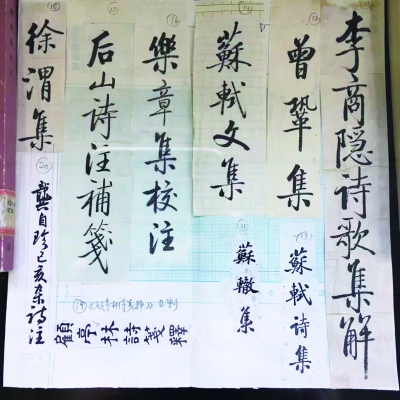 李商隐诗歌集解
曾鞏集
蘇軾诗集
蘇軾文集
蘇辙集
樂章集校注
后山诗注補箋
顧亭林詩箋釋
徐渭集
龔自珍己亥杂诗注